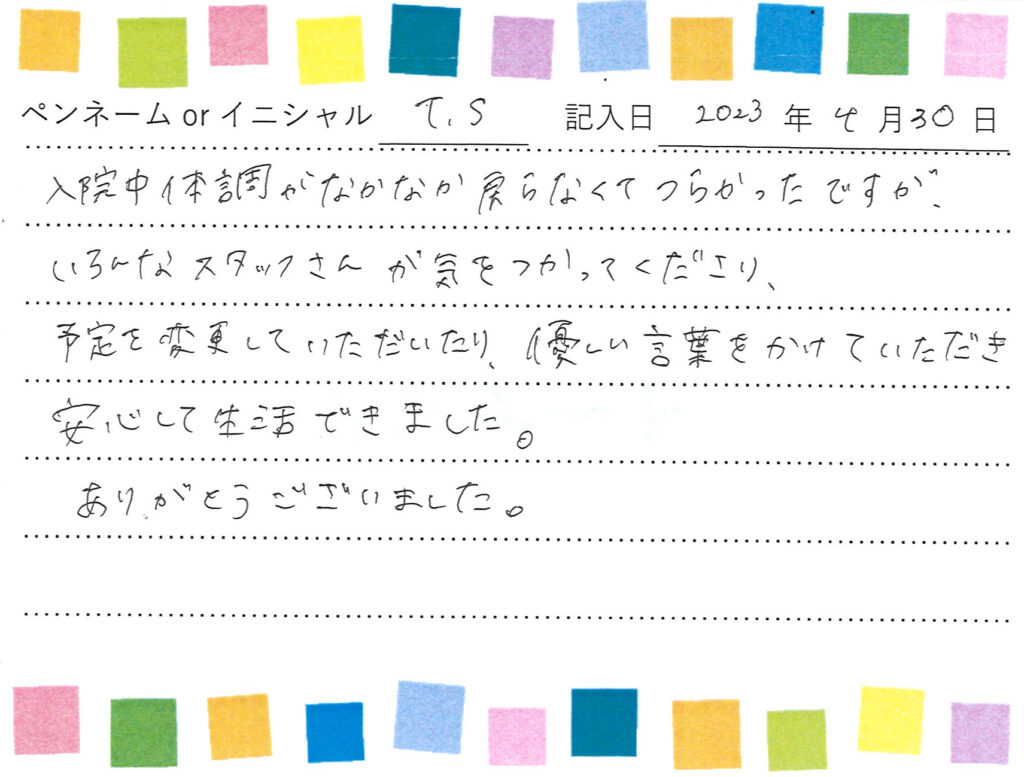 ペンネーム or イニシャル T.S 記入日 2023 年 4 月 30 日
入院中体調がなかなか戻らなくてつらかったですが、
いろんなスタッフさんが気をつかってくださり、
予定を変更していただいたり、優しい言葉をかけていただき
安心して生活できました。
ありがとうございました。